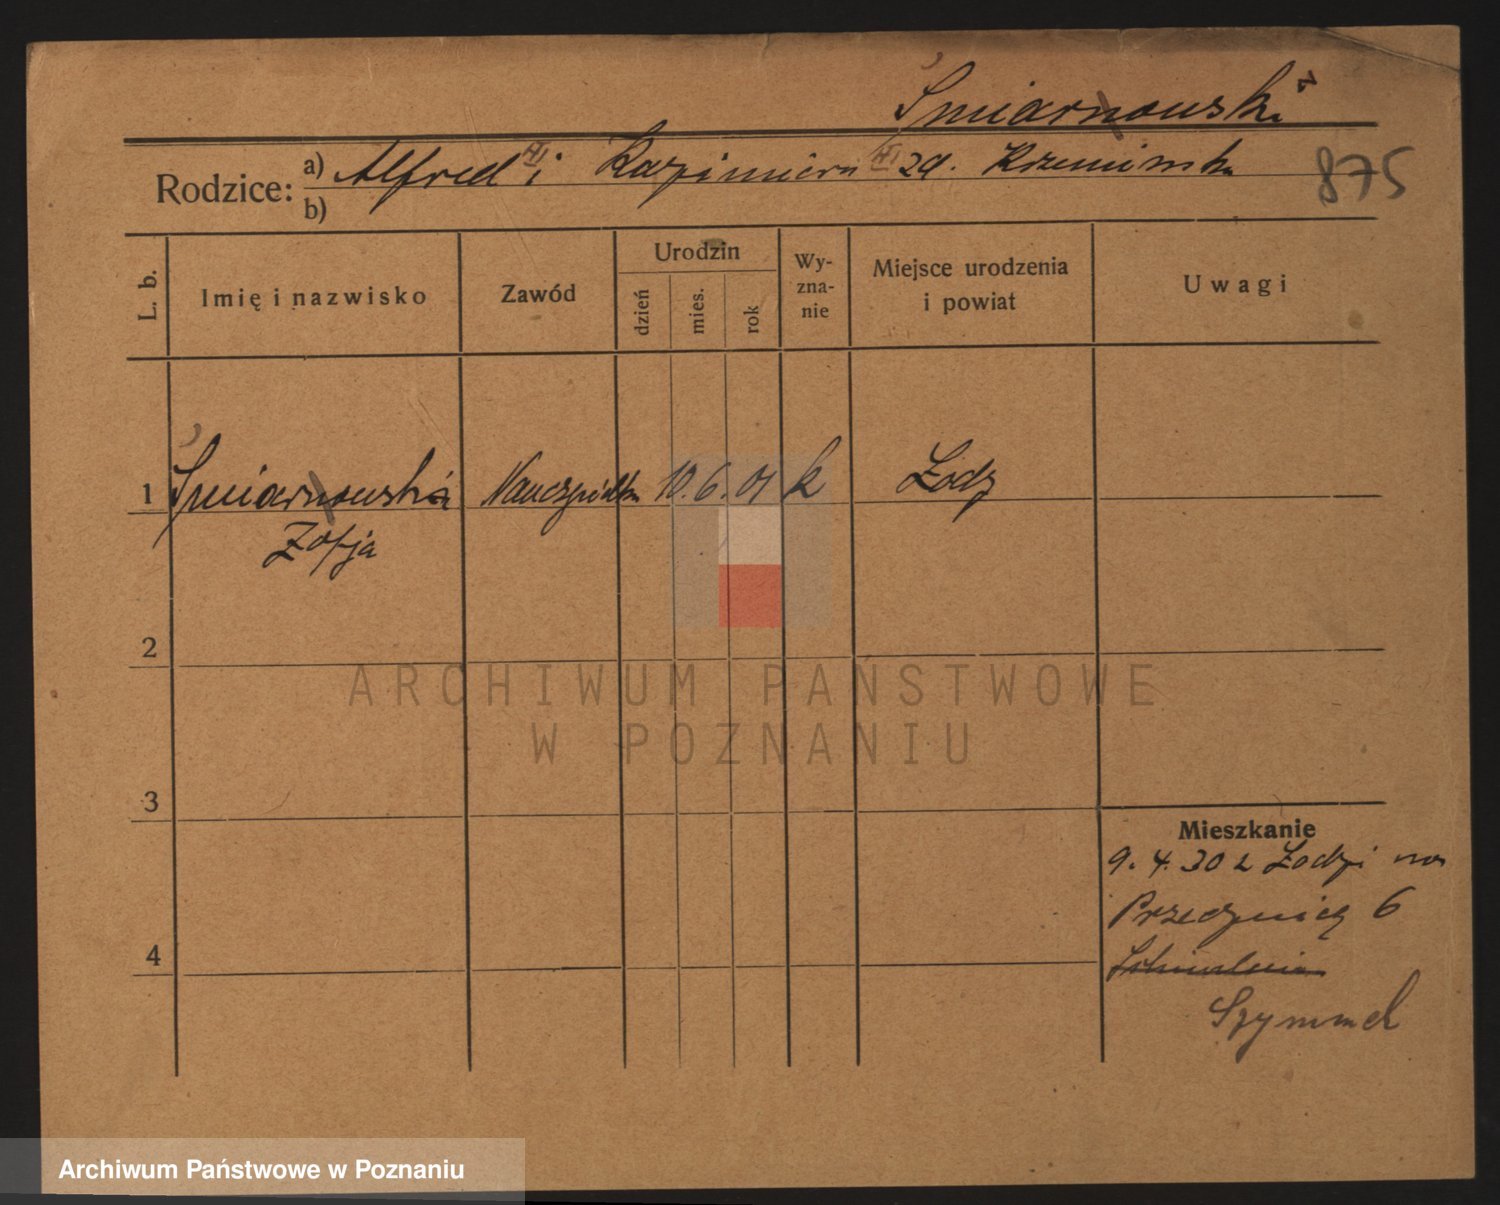 Śmiarnowski
Rodzice: a) Alfred i Kazimiera zd. Krzemińska
b)
875
L. b.
Imię i nazwisko
Zawód
Urodzin
dzień
mies.
rok
Wy-
zna-
nie
Miejsce urodzenia
i powiat
Uwagi
1 Śmiarnowska Nauczycielka 10. 6. 01 k Łodz
Zofja
2
3
4
Mieszkanie
9. 4. 30 z Łodzi na
Przecznicą 6
Szymmek
ARCHIWUM PAŃSTWOWE
W POZNANIU
Archiwum Państwowe w Poznaniu